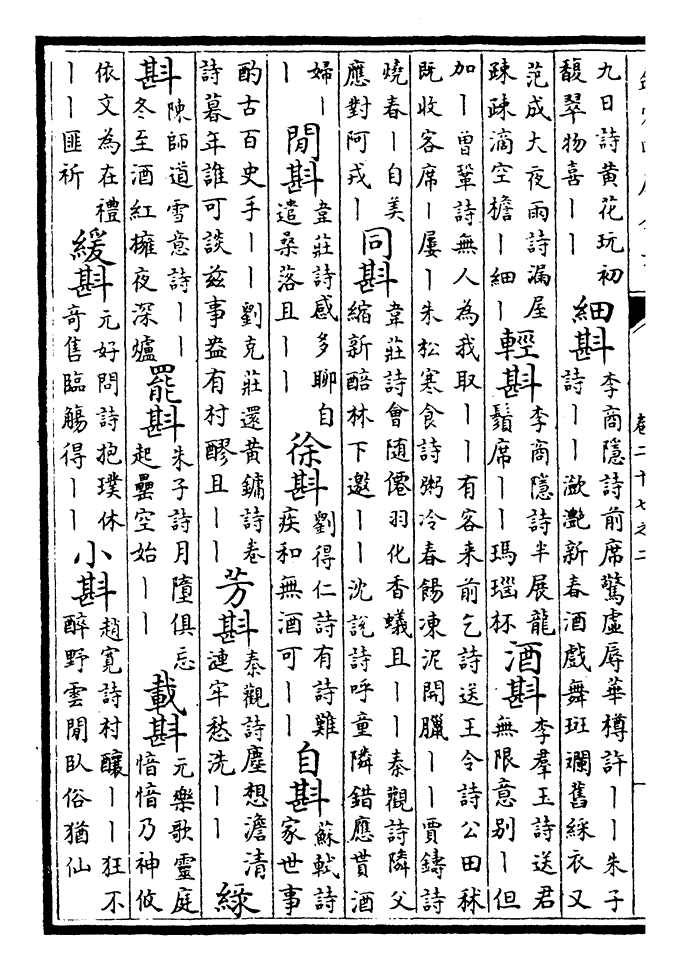 卷二十七之二
九日詩黄花玩初
馥翠物喜丨丨
細斟
李商隱詩前席驚虛辱華樽許丨丨朱子
詩丨丨瀲灩新春酒戲舞斑斕舊綵衣又
范成大夜雨詩漏屋
踈踈滴空檐丨細丨
輕斟
李商隱詩半展龍
鬚席丨丨瑪瑙杯
酒斟
李羣玉詩送君
無限意别丨但
加丨曽鞏詩無人為我取丨丨有客来前乞詩送王令詩公田秫
既收客席丨屢丨朱松寒食詩粥冷春餳凍泥開臘丨丨賈鑄詩
燒春丨自美
應對阿戎丨
同斟
韋莊詩會随僊羽化香蟻且丨丨秦觀詩隣父
縮新醅林下邀丨丨沈說詩呼童隣錯應貰酒
婦丨
丨
閒斟
韋莊詩感多聊自
遣桑落且丨丨
徐斟
劉得仁詩有詩難
疾和無酒可丨丨
自斟
蘇軾詩
家世事
酌古百史手丨丨劉克莊還黄鏞詩卷
詩暮年誰可談兹事盎有村醪且丨丨
芳斟
秦觀詩塵想澹清
漣牢愁洗丨丨
緑
斟
陳師道雪意詩丨丨
冬至酒紅擁夜深爐
罷斟
朱子詩月墮俱忘
起罍空始丨丨
載斟
元樂歌靈庭
愔愔乃神攸
依文為在禮
丨丨匪祈
緩斟
元好問詩抱璞休
竒售臨觴得丨丨
小斟
趙寛詩村釀丨丨狂不
醉野雲閒臥俗猶仙